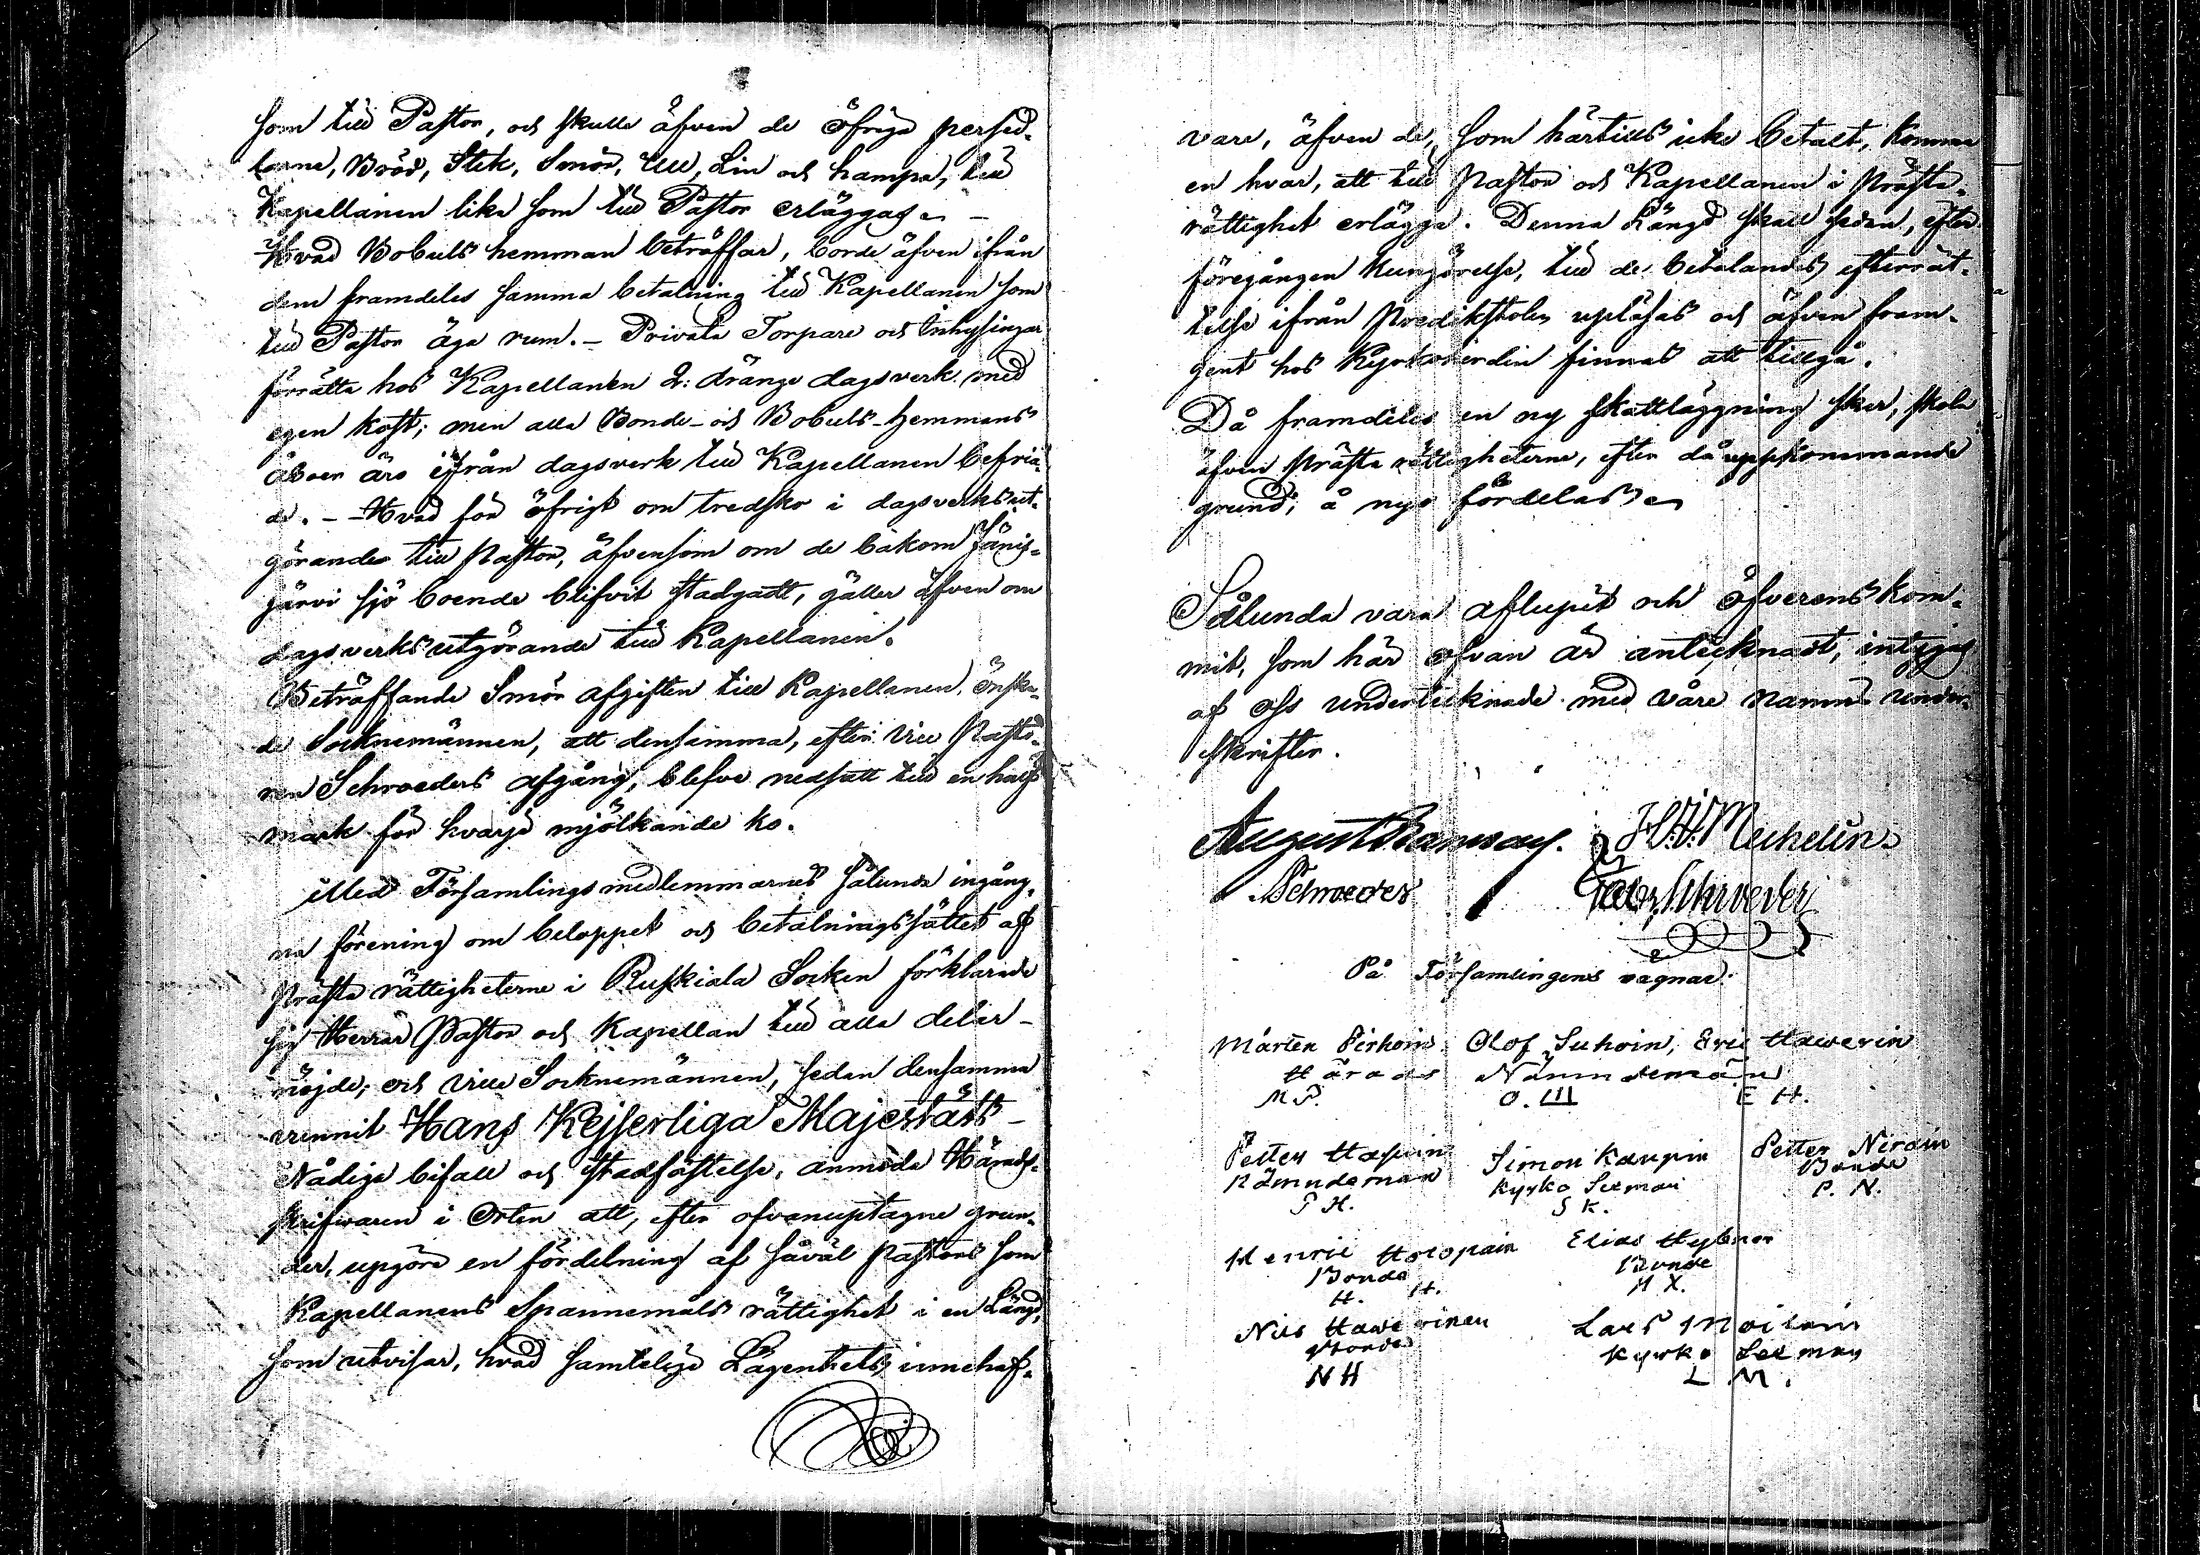 som till Pastor, och skulle äfven de öfriga persed-
larne, Bröd, Stek, Smör, Ull, Lin och hampa, till
Kapellanen lika som till Pastor erläggas. –
Hvad Bobuls hemman beträffar, borde äfven ifrån
dem framdeles samma betalning till Kapellanen som
till Pastor äga rum. – Privata Torpare och Inhysingar
förrätta hos Kapellanen 2: dränge dagsverk med
egen kost; men alla Bonde- och Bobuls-hemmans
åboer äro ifrån dagsverk till Kapellanen befria-
de. – Hvad för öfrigt om tredsko i dagsverks ut-
görande till Pastor, äfvensom om de bakom Jänis-
järvi sjö boende blifvit stadgadt, gäller äfven om
dagsverks utgörande till Kapellanen.
Beträffande Smör afgiften till Kapellanen, önska-
de Socknemännen, att densamma, efter Vice Pasto-
ren Schroeders afgång, blefve nedsatt till en half
mark för hvarje mjölkande ko.
Med Församlingsmedlemmarnes sålunda ingång-
na förening om beloppet och betalningssättet af
Prästa rättigheterne i Ruskiala Socken förklarade
sig Herrar Pastor och Kapellan till alla delar
nöjde, och ville Socknemännen, sedan densamma
vunnit Hans Kejserliga Majestäts
Nådiga bifall och stadfästelse, anmoda Härads-
skrifvaren i Orten att, efter ofvanuptagne grun-
der, upgöra en fördelning af såväl Pastors som
Kapellanens Spannemåls rättighet i en Längd,
som utvisar, hvad samtelige Lägenhets innehaf-
vare, äfven de, som härtills icke betalt, komma
en hvar, att till Pastor och Kapellanen i Prästa-
rättighet erlägga. Denna Längd skall sedan, efter
föregången kungörelse, till de betalandes efterrät-
telse ifrån Predikstolen upläsas och äfven fram-
gent hos Kyrkovärden finnas att tillgå.
Då framdeles en ny skattläggning sker, skola
äfven Prästa rättigheterne, efter då uppkommande
grund, å nyo fördelas.
Sålunda vara aflupit och öfverenskom-
mit, som här ofvan är antecknadt, intygas
af oss undertecknade med våre namns under-
skrifter.
August Ramsay. H.H. Mechelin.
Schroeder Schroeder
På Församlingens vägnar.
Mårten Pirhoin Olof Suhoin, Eric Hawerin
Härads Nämndemän
M P. O. S E H.
Petter Hapuin Simon Kaupin Petter Niroin
Nämndeman Kyrko Seeman Bonde
P H. S K. P. N.
Henric Holopain Elias
Bonde Bonde
H. H.
Nils Hawerinen Lars Moilain
Bonde Kyrko Seeman
N H L M.